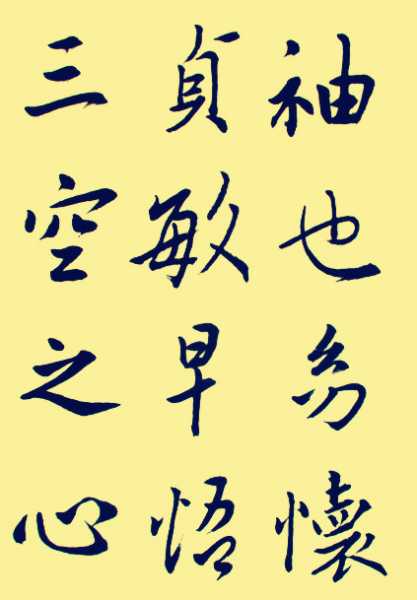 袖也幼懷
貞敏早悟
三空之心